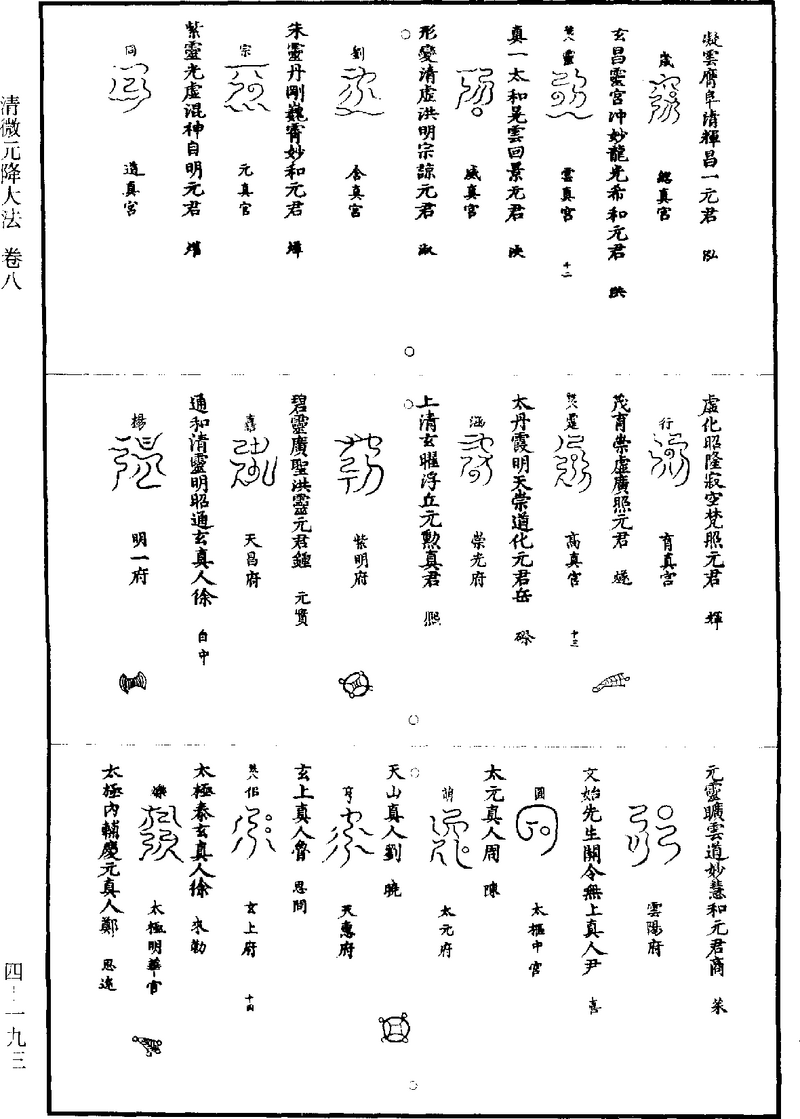 清微元降大法 卷八
四—一九三
凝雲膺阜清輝昌一元君 泓
歲
總真宮
玄昌靈宮沖妙龍光希和元君 洪
靈
雲真宮 十二
真一太和晃雲回景元君 決
威真宮
形變清虛洪明宗諒元君 淑
劉
含真宮
朱靈丹剛巍霄妙和元君
宗
元真宮
紫靈光虛混神自明元君
同
造真宮
虛化昭隆寂空梵照元君 輝
行
育真宮
茂育崇虛廣照元君
高真宮 十三
太丹霞明天崇道化元君岳
涵
崇光府
上清玄曜浮丘元勳真君 熙
紫明府
碧靈廣聖洪靈元君鍾 元實
嘉
天昌府
通和清靈明昭通玄真人徐 白中
楊
明一府
元靈曠雲道妙慧和元君商
雲陽府
文始先生關令無上真人尹 喜
圓
太極中宮
太元真人周 陳
太元府
天山真人劉 曉
亨
天惠府
玄上真人魯 思問
玄上府 十四
太極泰玄真人徐 來勒
太極明華宮
太極內輔慶元真人鄭 思遠